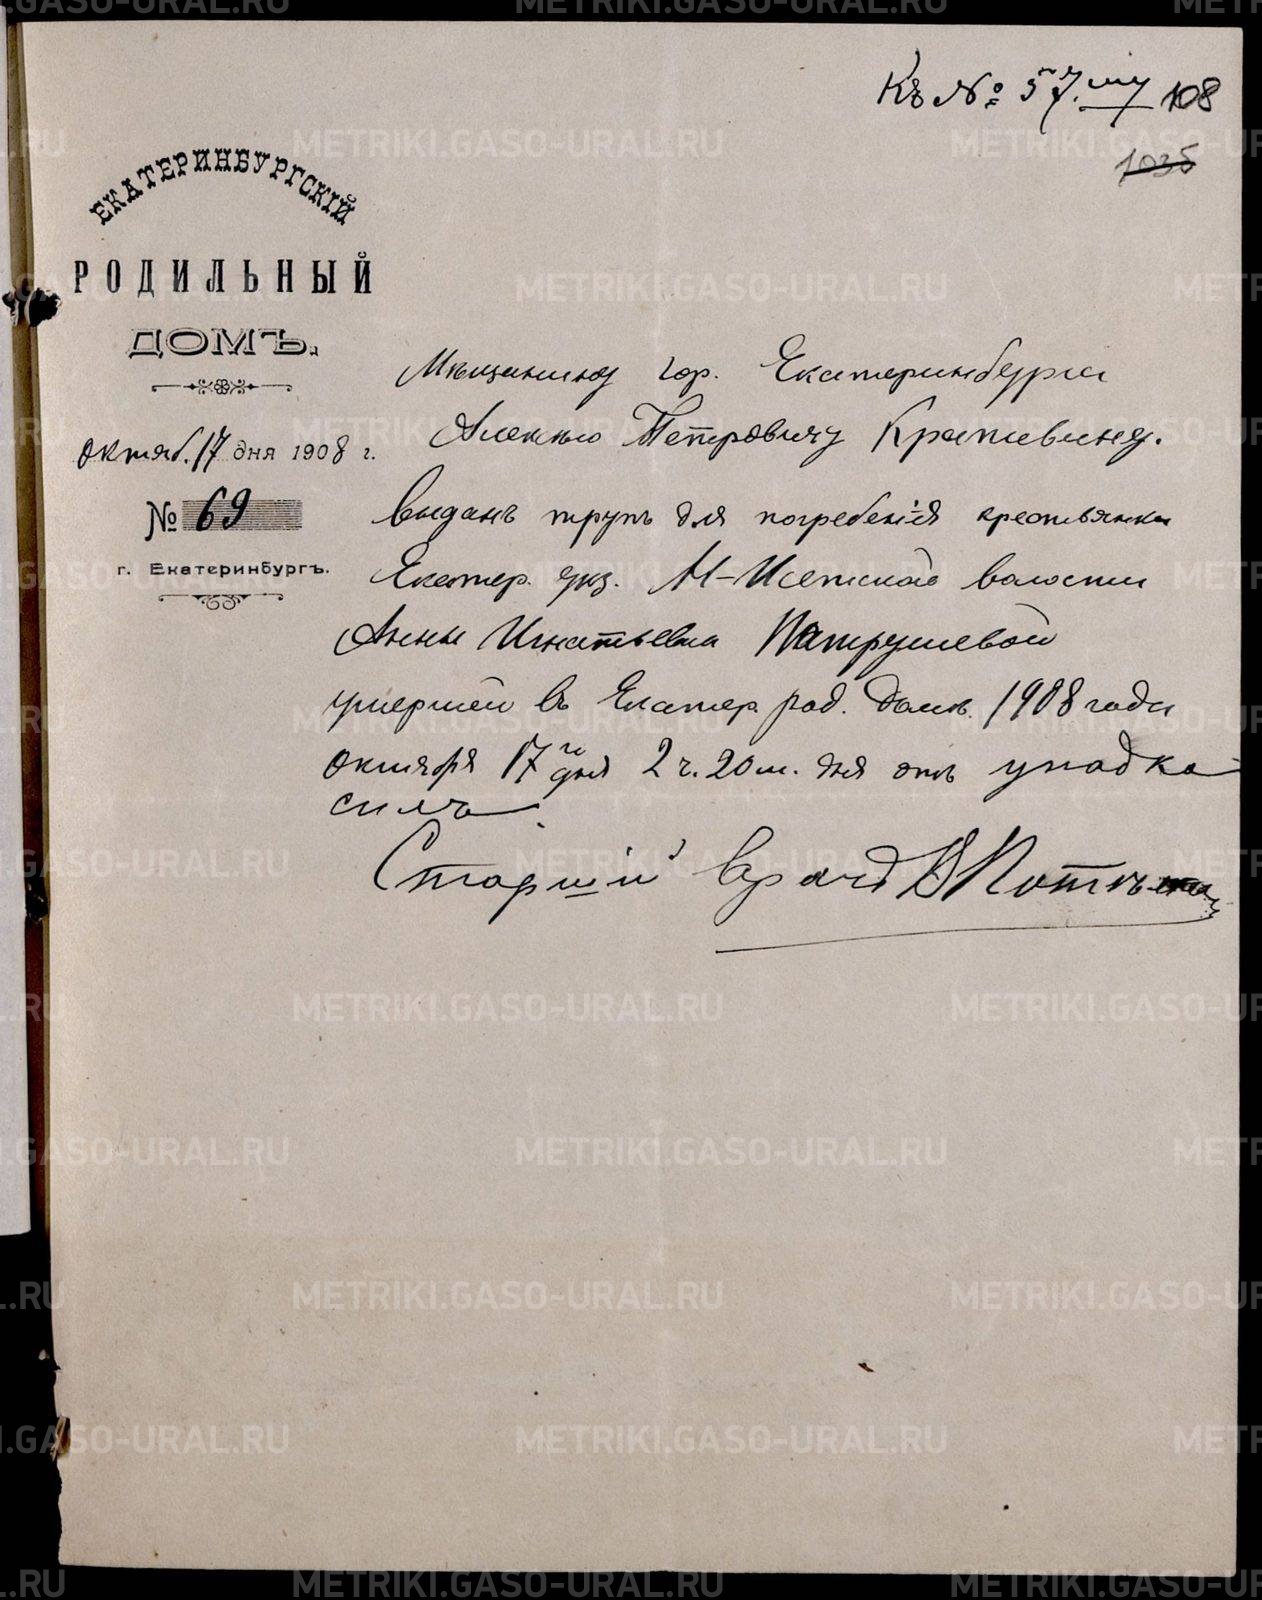 Къ № 57. 108
1035
ЕКАТЕРИНБУРГСКІЙ
РОДИЛЬНЫЙ
ДОМЪ.
Октяб. 17 дня 1908 г.
№ 69
г. Екатеринбургъ.
Мѣщанину гор. Екатеринбурга
Алексѣю Петровичу Крапивину.
Выданъ трупъ для погребенія крестьянки
Екатер. уѣз. М-Исетской волости
Анны Игнатьевна Патрушевой
умершей въ Екатер. род. домѣ. 1908 года
октября 17го дня 2 ч. 20 м. дня отъ упадка
силъ.
Старшій врачъ В
METRIKI.GASO-URAL.RU